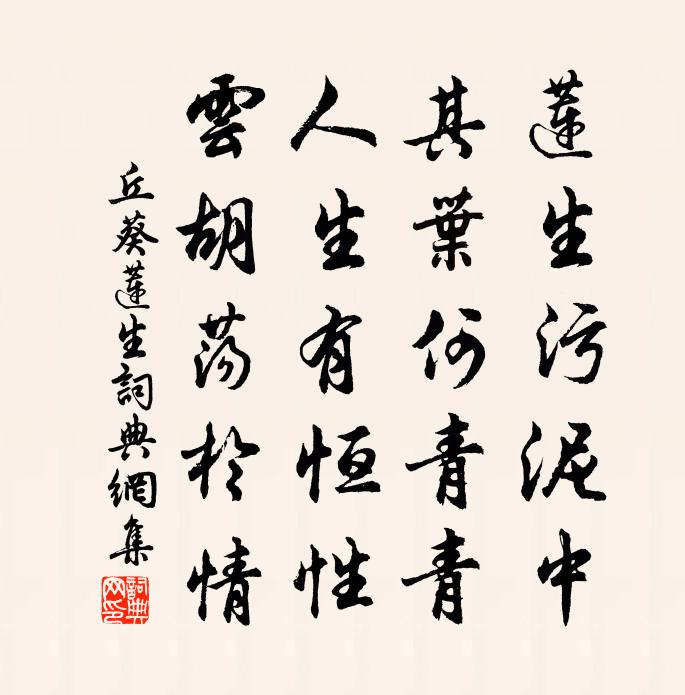 蓮生污泥中
其葉何青青
人生有恒性
雲胡蕩於情
丘葵蓮生詞典網集
詞典网印